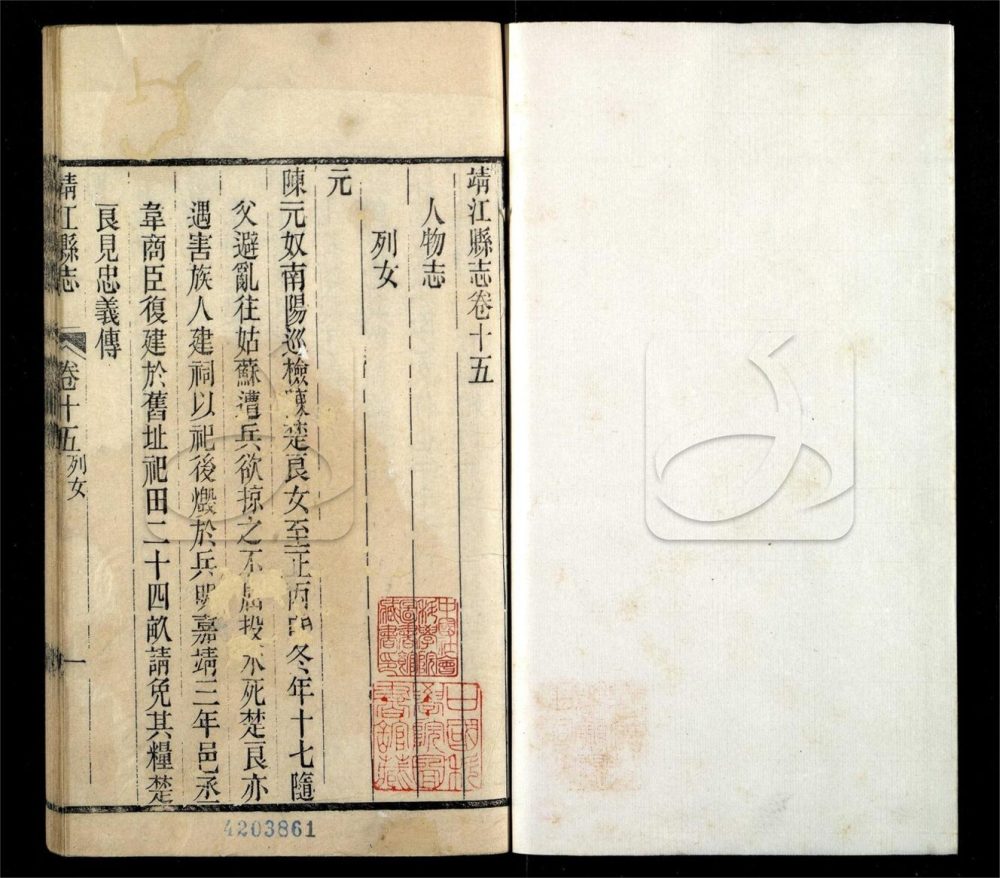 靖江縣志卷十五
人物志
列女
元
陳元奴南陽巡檢陳楚良女至正丙申冬年十七隨
父避亂往姑蘇遭兵欲掠之不屈投水死楚良亦
遇害族人建祠以祀後燬於兵明嘉靖三年邑丞
韋商臣復建於舊址祀田二十四畝請免其糧楚
良見忠義傳
靖江縣志
卷十五
列女
一
中國社會
科學院
圖書館
藏書印
中國科
學院圖
書館藏
4203861